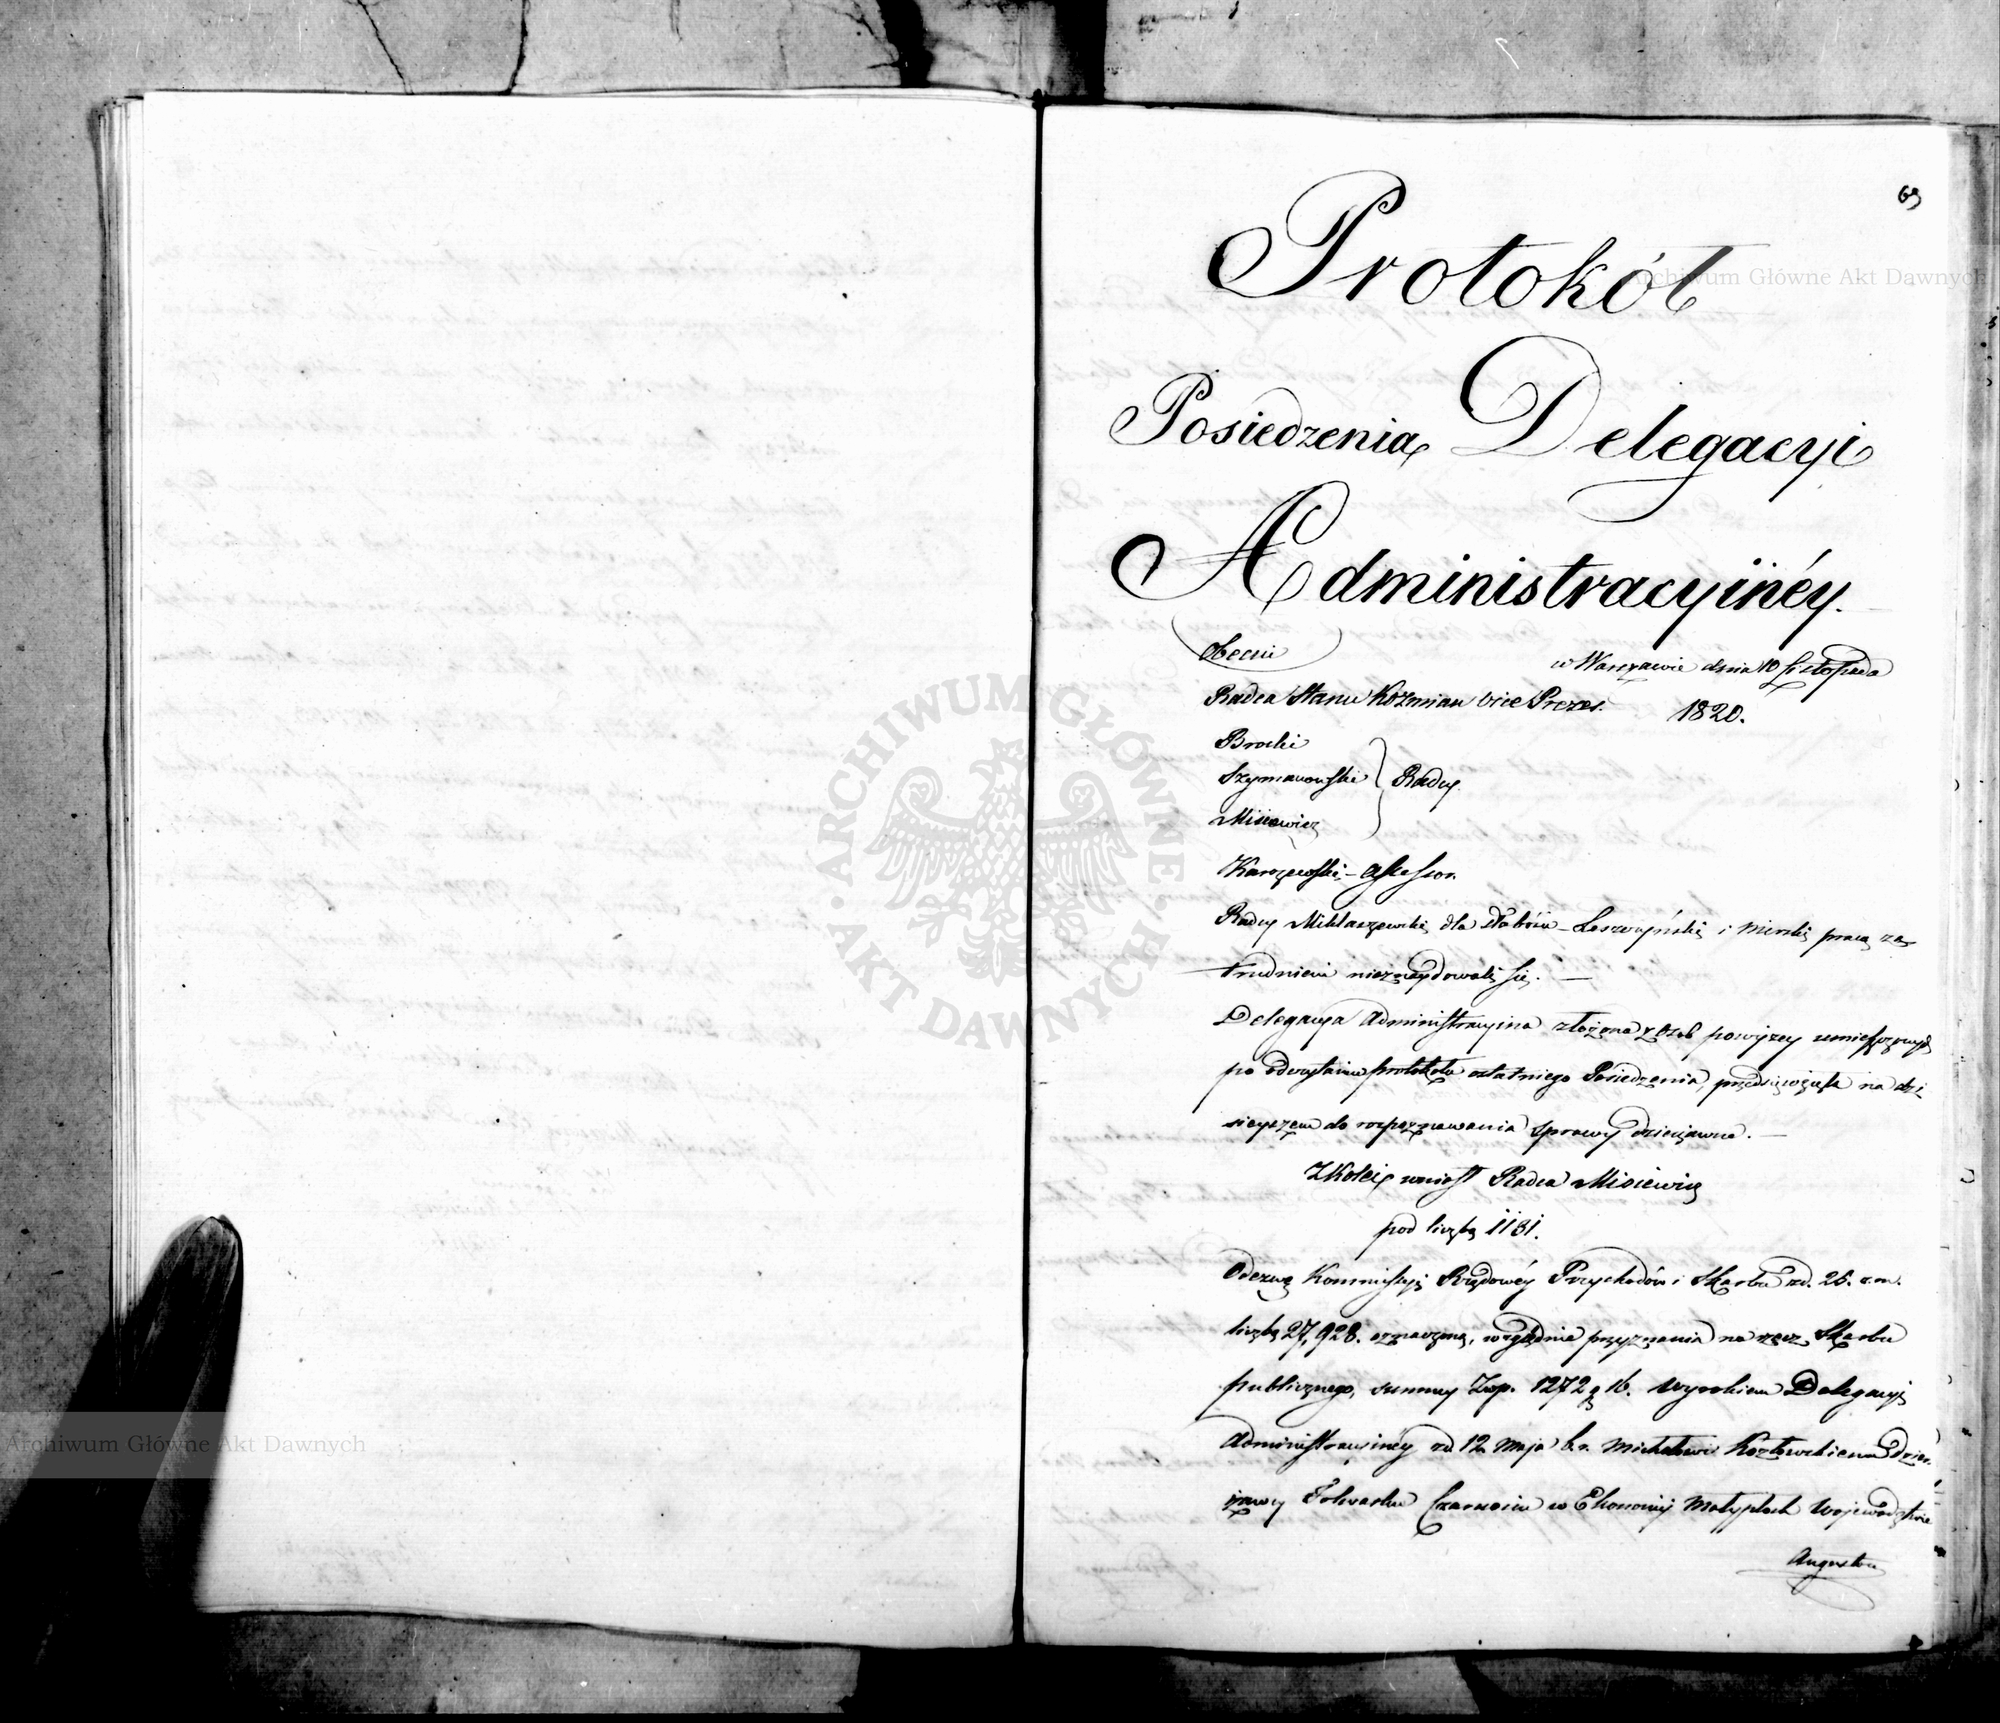 69
Protokół
Posiedzenia Delegacyi
Administracyinéy.
Obecni
w Warszawie dnia 10 Listopada
1820.
Radca Stanu Koźmian Vice Prezes.
Brocki
Szymanowski
Radcy.
Misiewicz
Karczewski – Assessor.
Radcy Miklaszewski dla słabości – Leszczyński i Mirski pracą za-
trudnieni nieznaydowali się. —
Delegacya Administracyina złożona z Osób powyżey umieszczonych
po odczytaniu protokołu ostatniego Posiedzenia, przedsięwzięła na dzi
sieyszem do rozpoznawania sprawy dzierżawne. —
Z kolei wniósł Radca Misiewicz
pod liczbą 1181.
Odezwę Kommissyi Rządowéy Przychodów i Skarbu z d. 26. z. m.
liczbą 27,928. oznaczoną, względnie przyznania na rzecz Skarbu
publicznego, summy Złp. 1272 g 16. Wyrokiem Delegacyi
Administracyinéy z d. 12. Maja b. r. Michałowi Kozłowskiemu dzier-
żawcy Folwarku w Ekonomij Województwie
Augustow
Archiwum Główne Akt Dawnych
Archiwum Główne Akt Dawnych
ARCHIWUM GŁÓWNE AKT DAWNYCH